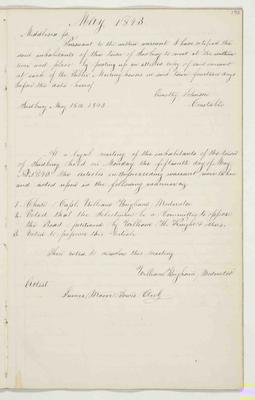 May 1843
Middlesex ss.
Pursuant to the within warrant I have notified the
said inhabitants of the town of Sudbury to meet at the within
time and place by posting up an attested copy of said warrant
at each of the Public Meeting houses in said town fourteen days
before the date hereof
Constable
Sudbury May 15th 1843
At a legal meeting of the inhabitants of the town
of Sudbury held on Monday the fifteenth day of May
AD 1843 the articles in the preceding warrant were taken
and acted upon in the following order viz
1. Chose Capt. William Brigham Moderator
2. Voted that the Selectmen be a Committee to oppose
the Road petitioned by William H. Knight & others.
3. Voted to postpone this Article
Then voted to dissolve this meeting
William Brigham, Moderator
Attest
James Moore Town Clerk